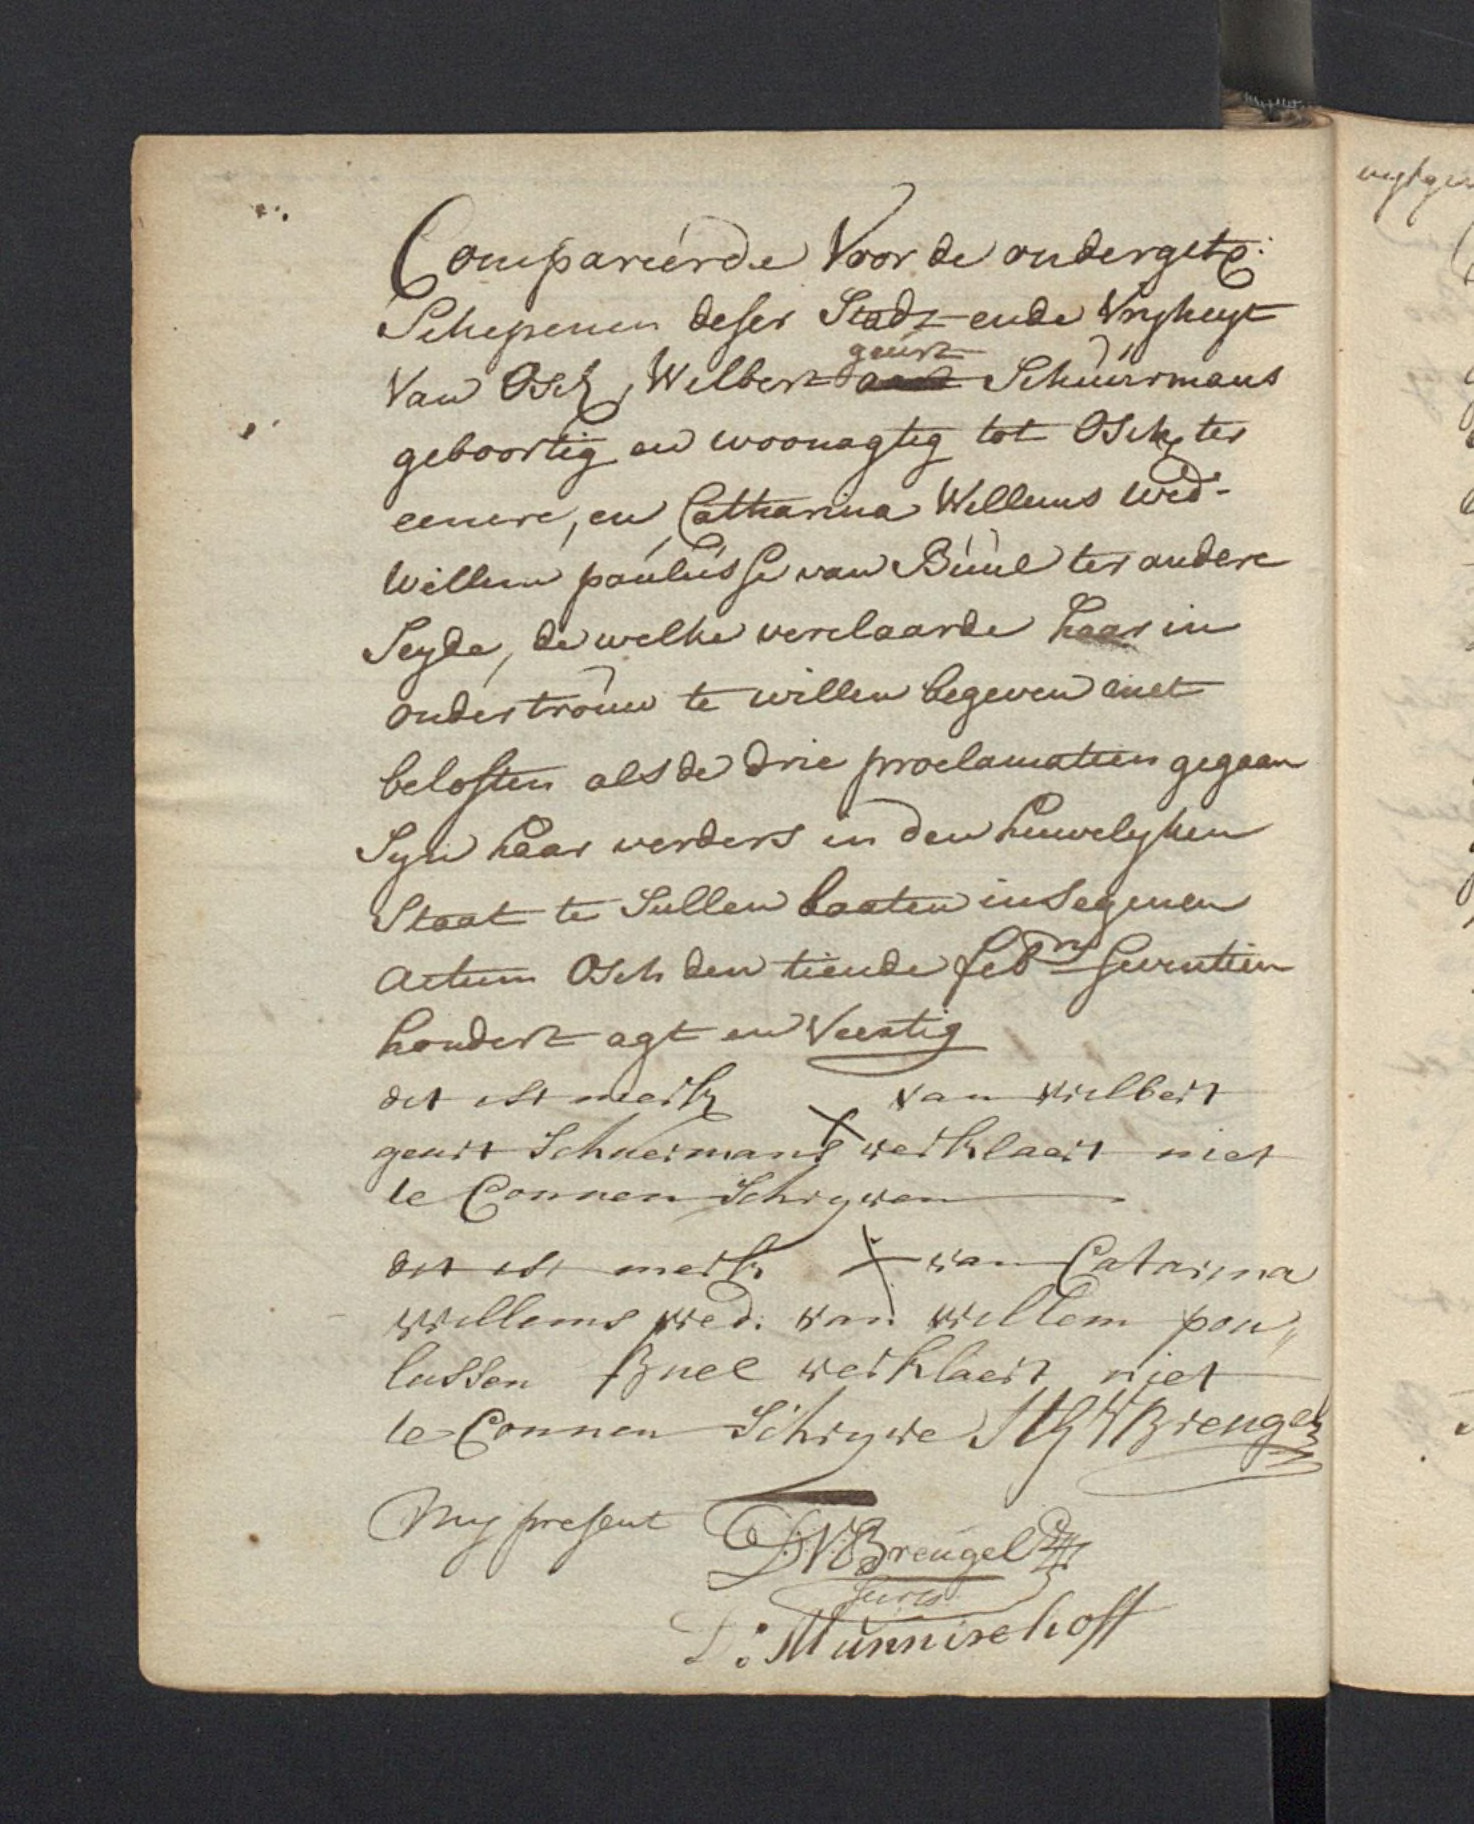 Compareerde Voor de ondergetз:
Schepenen deser Stadt ende Vryheyt
geurt
Van Osch, Wilbert aart Schuurmans
geboortig en woonagtig tot Osch, ter
eenere, en Catharina Willems wed-
Willem paulusse van Buul ter andere
Seyde, de welke verclaarde haar in
ondertrouw te willen begeven met
beloften als de drie proclamatien gegaan
Syn haar verders in den huwelyken
Staat te Sullen laaten insegenen
Actum Osch den tiende febry Seventien
hondert agt en Veertig
dit ist merk X van wilbert
geurt Schuermans verklaert niet
te Connen Schryven
dit ist merk X van Catarina
willems wed. van willem pou„
lussen Buel verklaert niet
te Connen Schryve V Breugel
My present
D.V. Breugel
Secrts
D: Munnickhoff